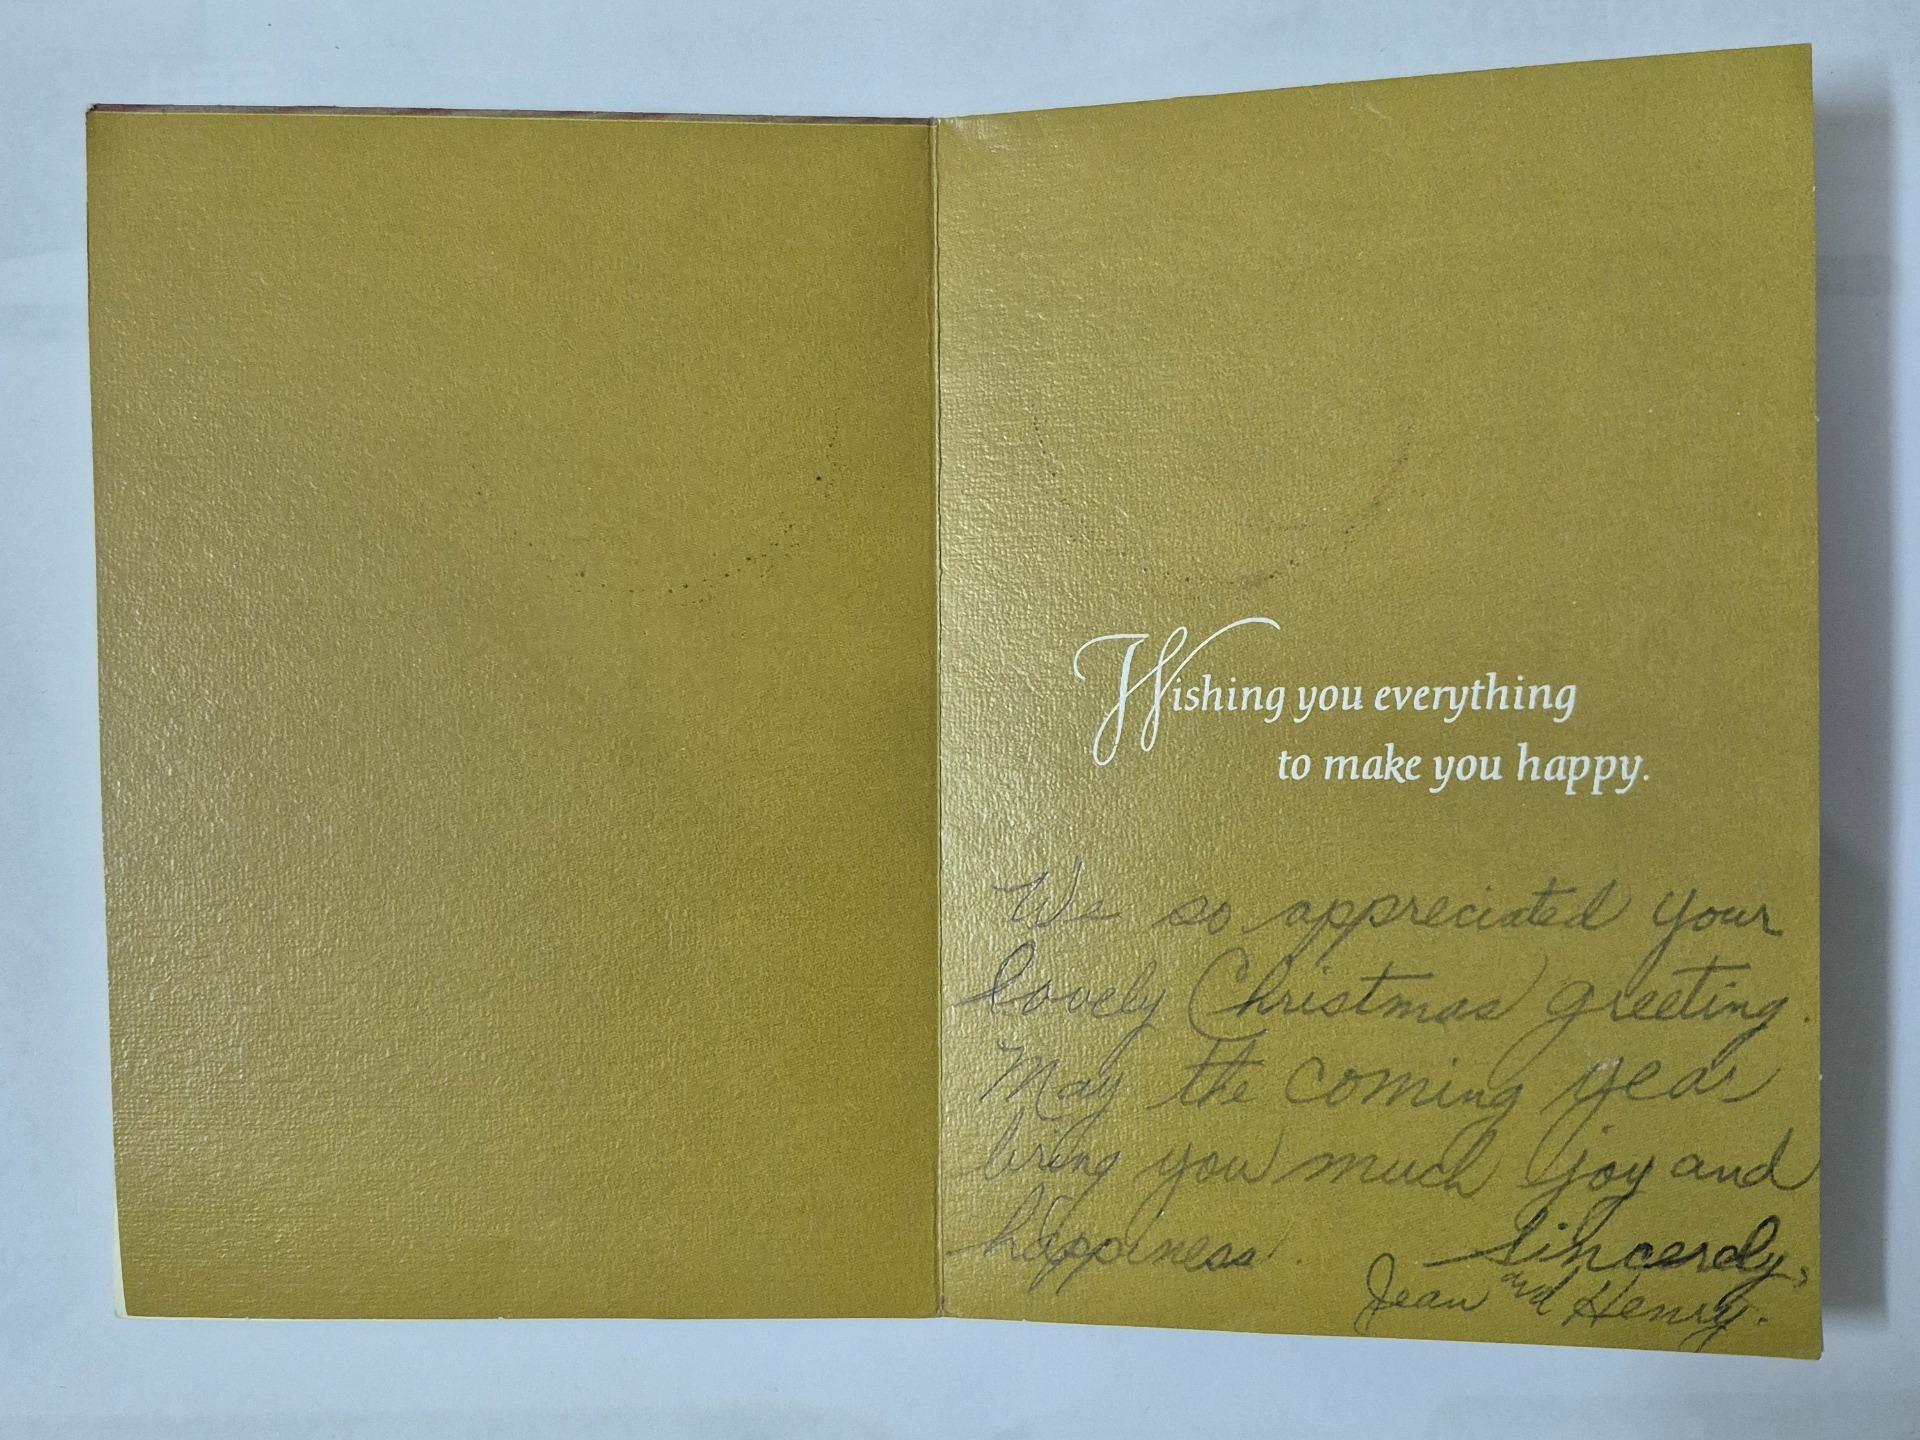 Wishing you everything
to make you happy.
We so appreciated your
lovely Christmas greeting.
May the coming year
bring you much joy and
happiness.
Sincerely,
Jean and Henry.